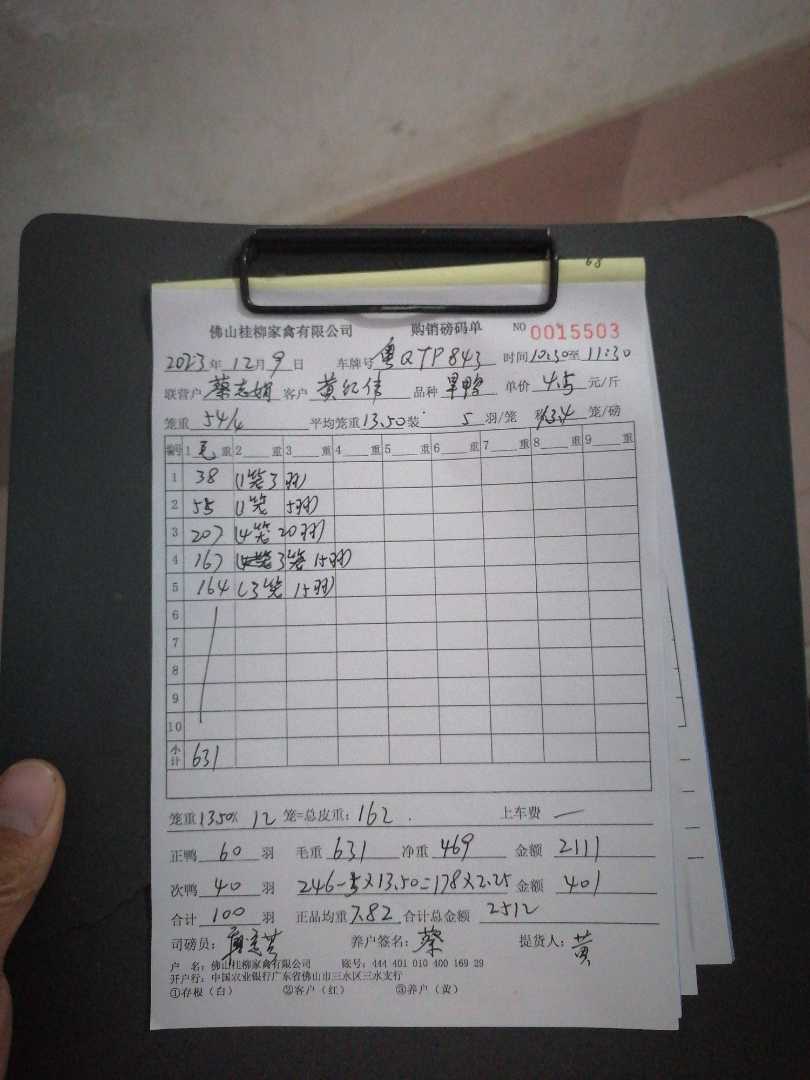 68
佛山桂柳家禽有限公司 购销磅码单 NO 0015503
2023年12月9日 车牌号 粤QTP843 时间10:30至11:30
联营户 蔡志娟 客户 黄红伟 品种 旱鸭 单价 4.5 元/斤
笼重 54/4 平均笼重13.50装 5 羽/笼 称 3.4 笼/磅
编号 1 毛 重 2 重 3 重 4 重 5 重 6 重 7 重 8 重 9 重
1 38 (1笼3羽)
2 55 (1笼 5羽)
3 207 (4笼 20羽)
4 167 (3笼 15羽)
5 164 (3笼 15羽)
6
7
8
9
10
小计 631
笼重 13.50x 12 笼=总皮重: 162. 上车费 —
正鸭 60 羽 毛重 631 净重 469 金额 2111
次鸭 40 羽 246-5x13.50=178x2.25 金额 401
合计 100 羽 正品均重 7.82 合计总金额 2512
司磅员: 养户签名: 蔡 提货人: 黄
户 名: 佛山桂柳家禽有限公司 账号: 444 401 010 400 169 29
开户行: 中国农业银行广东省佛山市三水区三水支行
①存根(白) ②客户(红) ③养户(黄)